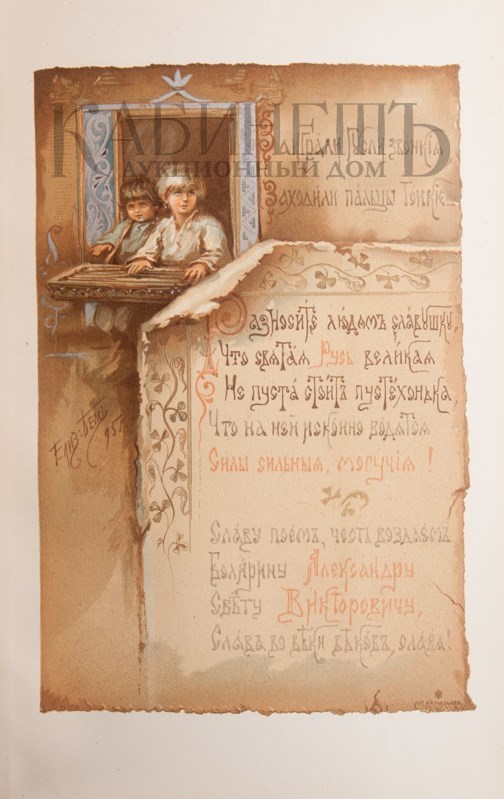 КАБИНЕТЪ
АУКЦИОННЫЙ ДОМ
Заиграли Гусли звонкія
Заходили пальцы тонкіе...
Разносите людямъ славушку,
Что святая Русь великая
Не пуста стоитъ пустёхонька,
Что на ней искони водятся
Силы сильныя, могучія!
Славу поёмъ, честь воздаёмъ
Болярину Александру
Свѣту Викторовичу,
Славъ во вѣки вѣковъ, слава!
Елиз: Бемъ
95 г